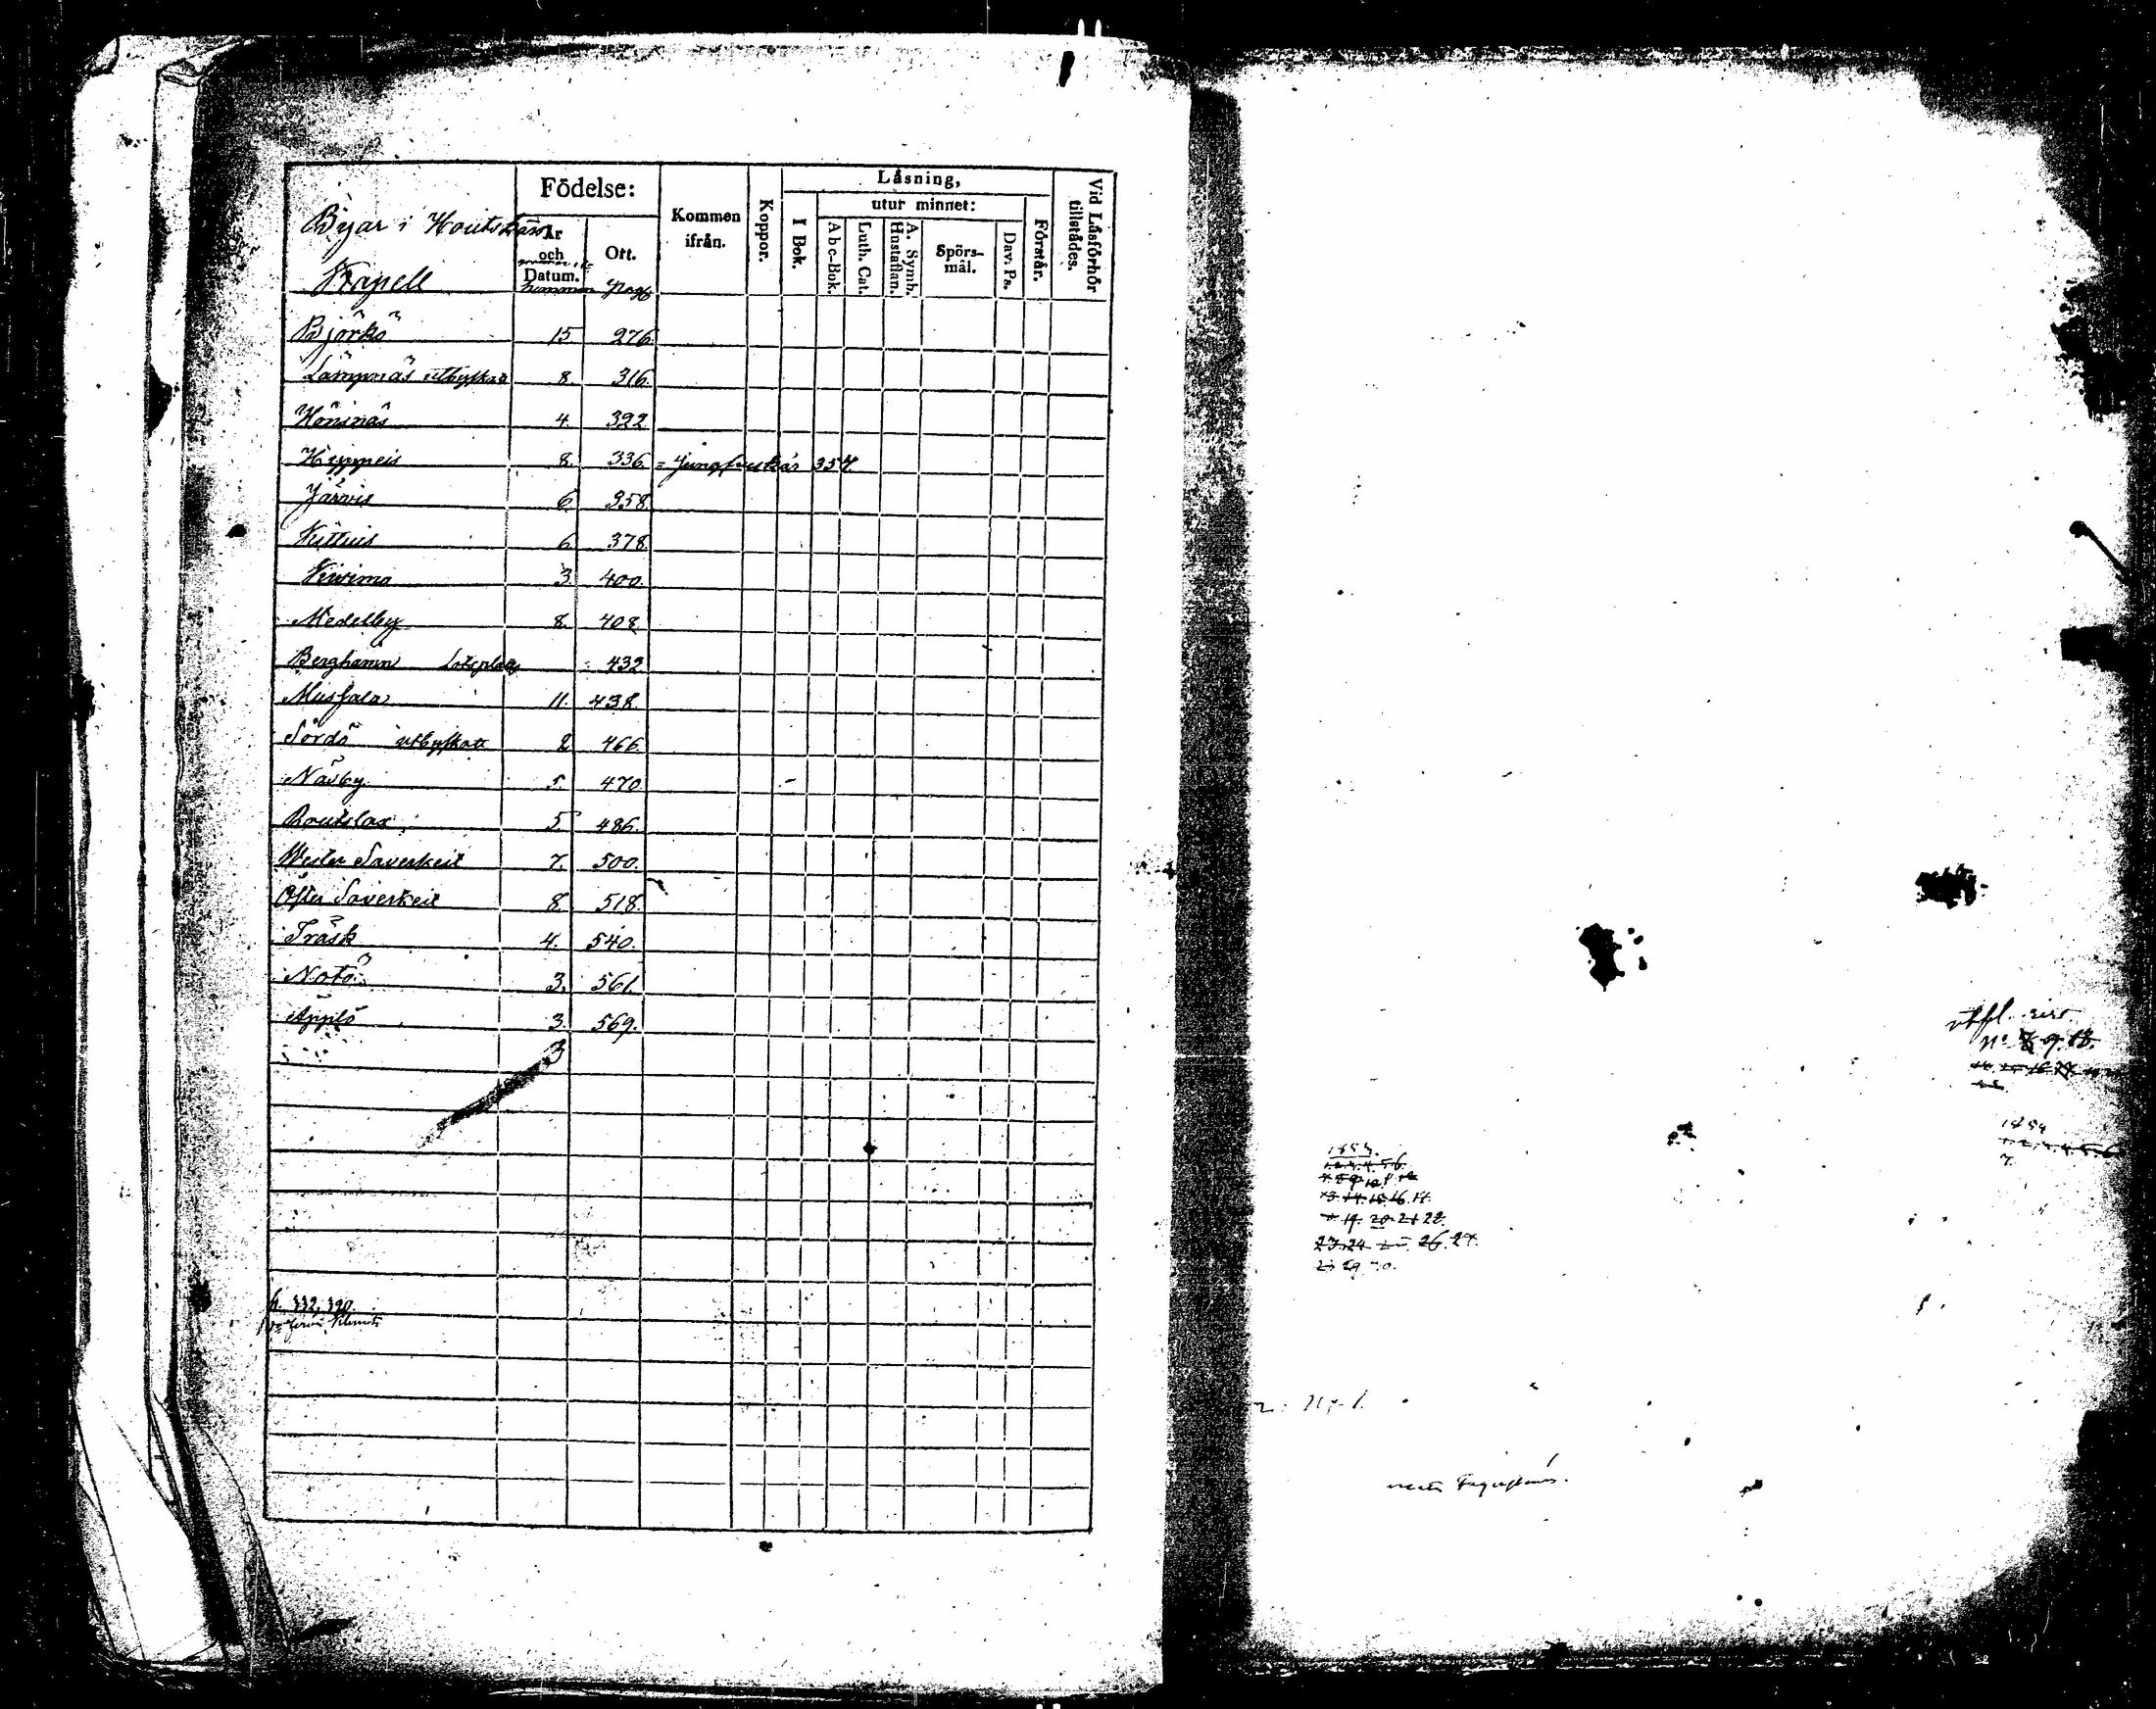 Byar i Houtskärs
Kapell
Födelse:
År och Datum.
hemman
Ort.
pag.
Kommen ifrån.
Koppor.
Läsning,
I Bok.
utur minnet:
Abc-Bok.
Luth. Cat.
A. Symb. Hustaflan.
Spörs-mål.
Dav. Ps.
Förstår.
Vid Läsförhör tillstådes.
Björkö 15 276
Lämpnäs utbyskatt 8. 316.
Hönsnäs 4. 322
Hyppeis 8. 336 = Jungfruskär 354
Järvis 6 358.
Kittuis 6 378.
Kivimo 3. 400.
Medelby 8. 408
Berghamn Lotsplats 432
Mussala 11. 438.
Sördö utbyskatt 8 466.
Näsby 5. 470
Roslax 5. 486.
Wester Saverkeit 7. 500.
Öster Saverkeit 8. 518.
Träsk 4. 540.
Notö 3. 561.
Äpplö 3. 569.
3
332, 390.
utfl.
No 8 9. 13.
1854
7.
1853.
1. 2. 3. 4. 5. 6.
13. 14. 15. 16. 17.
19. 20. 21 22.
23. 24. 26. 27.
29